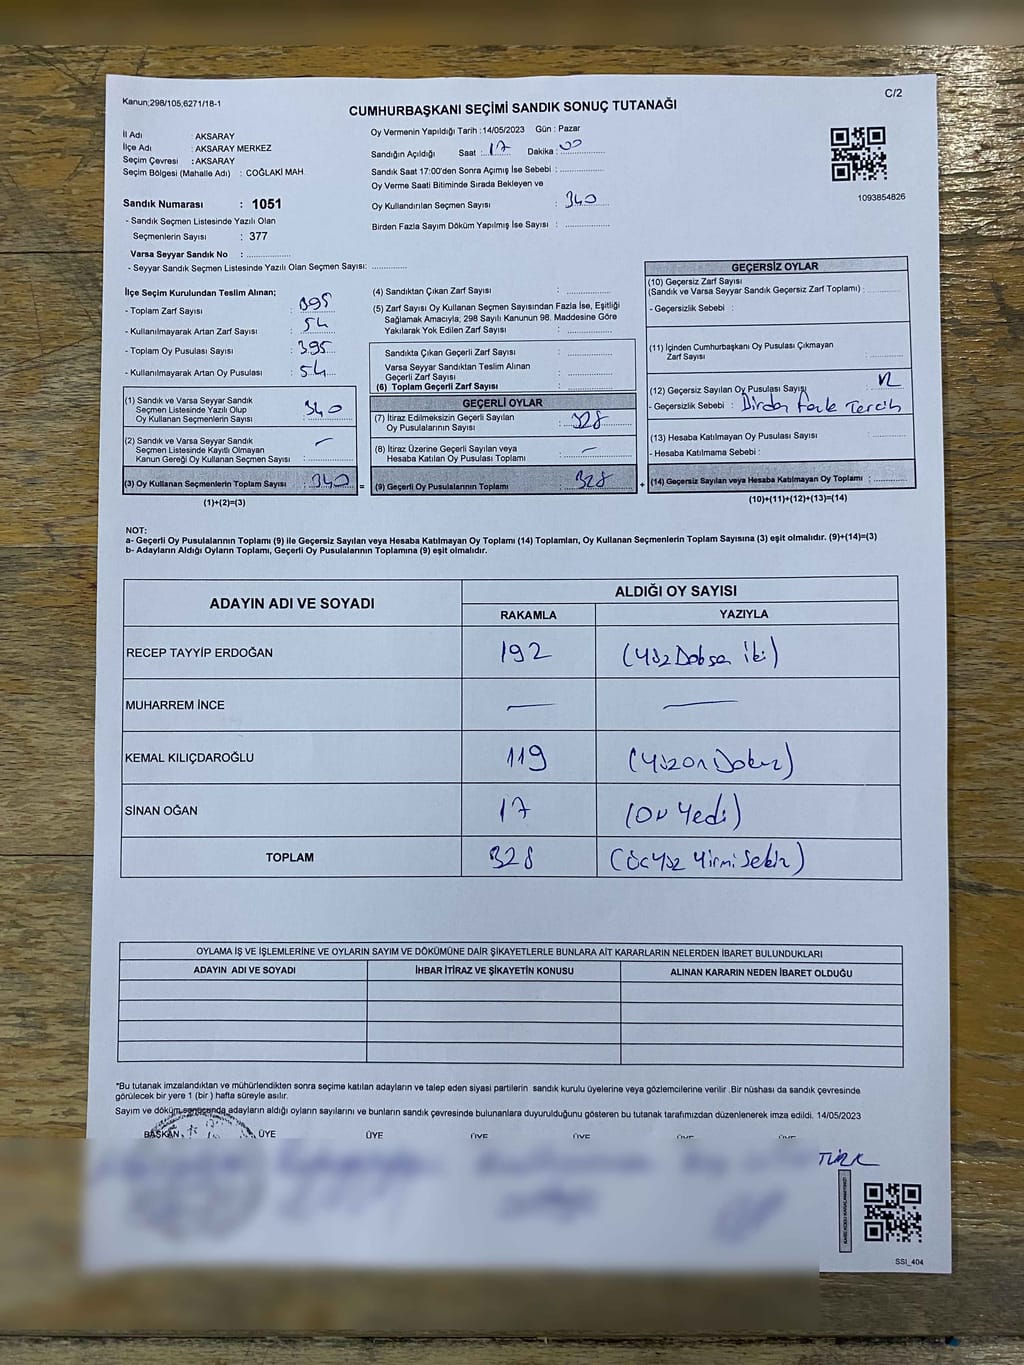 Kanun;298/105;6271/18-1
C/2
CUMHURBAŞKANI SEÇİMİ SANDIK SONUÇ TUTANAĞI
İl Adı : AKSARAY
İlçe Adı : AKSARAY MERKEZ
Seçim Çevresi : AKSARAY
Seçim Bölgesi (Mahalle Adı) : COĞLAKI MAH.
Oy Vermenin Yapıldığı Tarih :14/05/2023 Gün : Pazar
Sandığın Açıldığı Saat : 17 Dakika : 00
Sandık Saat 17:00'den Sonra Açımış İse Sebebi :
Oy Verme Saati Bitiminde Sırada Bekleyen ve
Oy Kullandırılan Seçmen Sayısı : 340
Birden Fazla Sayım Döküm Yapılmış İse Sayısı :
1093854826
Sandık Numarası : 1051
- Sandık Seçmen Listesinde Yazılı Olan
Seçmenlerin Sayısı : 377
Varsa Seyyar Sandık No :
- Seyyar Sandık Seçmen Listesinde Yazılı Olan Seçmen Sayısı:
İlçe Seçim Kurulundan Teslim Alınan;
- Toplam Zarf Sayısı : 395
- Kullanılmayarak Artan Zarf Sayısı : 54
- Toplam Oy Pusulası Sayısı : 395
- Kullanılmayarak Artan Oy Pusulası : 54
(1) Sandık ve Varsa Seyyar Sandık
Seçmen Listesinde Yazılı Olup
Oy Kullanan Seçmenlerin Sayısı : 340
(2) Sandık ve Varsa Seyyar Sandık
Seçmen Listesinde Kayıtlı Olmayan
Kanun Gereği Oy Kullanan Seçmen Sayısı : —
(3) Oy Kullanan Seçmenlerin Toplam Sayısı : 340 =
(1)+(2)=(3)
(4) Sandıktan Çıkan Zarf Sayısı :
(5) Zarf Sayısı Oy Kullanan Seçmen Sayısından Fazla İse, Eşitliği
Sağlamak Amacıyla; 298 Sayılı Kanunun 98. Maddesine Göre
Yakılarak Yok Edilen Zarf Sayısı :
Sandıkta Çıkan Geçerli Zarf Sayısı :
Varsa Seyyar Sandıktan Teslim Alınan
Geçerli Zarf Sayısı :
(6) Toplam Geçerli Zarf Sayısı :
GEÇERLİ OYLAR
(7) İtiraz Edilmeksizin Geçerli Sayılan
Oy Pusulalarının Sayısı : 328
(8) İtiraz Üzerine Geçerli Sayılan veya
Hesaba Katılan Oy Pusulası Toplamı : —
(9) Geçerli Oy Pusulalarının Toplamı : 328 +
GEÇERSİZ OYLAR
(10) Geçersiz Zarf Sayısı
(Sandık ve Varsa Seyyar Sandık Geçersiz Zarf Toplamı) :
- Geçersizlik Sebebi :
(11) İçinden Cumhurbaşkanı Oy Pusulası Çıkmayan
Zarf Sayısı :
(12) Geçersiz Sayılan Oy Pusulası Sayısı : 12
- Geçersizlik Sebebi : Birden Fazle Tercih
(13) Hesaba Katılmayan Oy Pusulası Sayısı :
- Hesaba Katılmama Sebebi :
(14) Geçersiz Sayılan veya Hesaba Katılmayan Oy Toplamı :
(10)+(11)+(12)+(13)=(14)
NOT:
a- Geçerli Oy Pusulalarının Toplamı (9) ile Geçersiz Sayılan veya Hesaba Katılmayan Oy Toplamı (14) Toplamları, Oy Kullanan Seçmenlerin Toplam Sayısına (3) eşit olmalıdır. (9)+(14)=(3)
b- Adayların Aldığı Oyların Toplamı, Geçerli Oy Pusulalarının Toplamına (9) eşit olmalıdır.
ADAYIN ADI VE SOYADI
ALDIĞI OY SAYISI
RAKAMLA YAZIYLA
RECEP TAYYİP ERDOĞAN 192 (Yüz Doksa İki)
MUHARREM İNCE — —
KEMAL KILIÇDAROĞLU 119 (Yüzon Dokuz)
SİNAN OĞAN 17 (On Yedi)
TOPLAM 328 (Üç Yüz Yirmi Sekiz)
OYLAMA İŞ VE İŞLEMLERİNE VE OYLARIN SAYIM VE DÖKÜMÜNE DAİR ŞİKAYETLERLE BUNLARA AİT KARARLARIN NELERDEN İBARET BULUNDUKLARI
ADAYIN ADI VE SOYADI İHBAR İTİRAZ VE ŞİKAYETİN KONUSU ALINAN KARARIN NEDEN İBARET OLDUĞU
*Bu tutanak imzalandıktan ve mühürlendikten sonra seçime katılan adayların ve talep eden siyasi partilerin sandık kurulu üyelerine veya gözlemcilerine verilir .Bir nüshası da sandık çevresinde
görülecek bir yere 1 (bir ) hafta süreyle asılır.
Sayım ve döküm sonucunda adayların aldığı oyların sayılarını ve bunların sandık çevresinde bulunanlara duyurulduğunu gösteren bu tutanak tarafımızdan düzenlenerek imza edildi. 14/05/2023
BAŞKAN ÜYE ÜYE ÜYE ÜYE ÜYE ÜYE
TÜRK
SSI_404